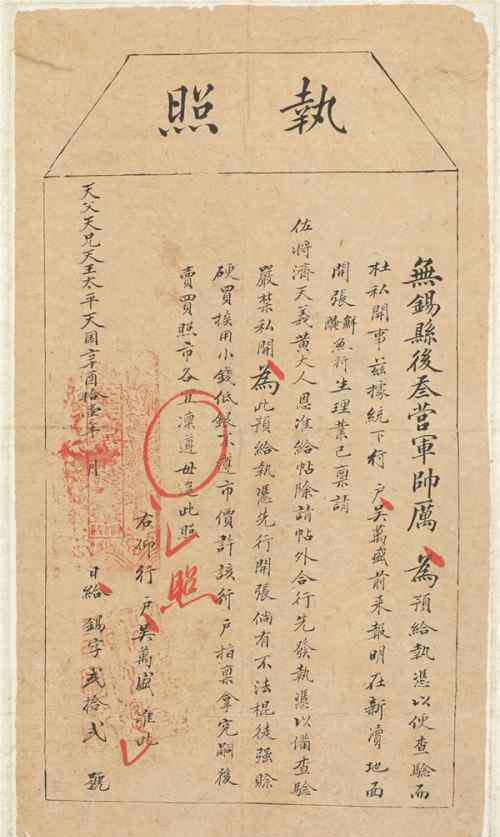 執照
無錫縣後叁營軍帥厲 為預給執憑以便查驗而
杜私開事茲據統下行户吳萬盛前來報明在新瀆地面
開張鮮醃魚行生理業已稟請
佐將濟天義黃大人恩准給帖除請帖外合行先發執憑以備查驗
嚴禁私開為此預給執憑先行開張倘有不法棍徒強賒
硬買換用小錢低銀不遵市價許該行户指稟拿究嗣後
賣買照市各宜凜遵毋違此照
照
右仰行户吳萬盛准此
天父天兄天王太平天囯辛酉拾壹年 月 日給 錫字弍拾弍號